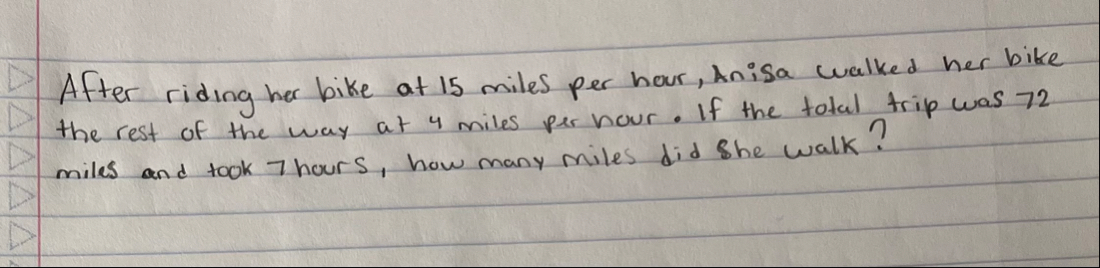 After riding her bike at 15 miles per hour, Anisa walked her bike
the rest of the way at 4 miles per hour. If the total trip was 72
miles and took 7 hours, how many miles did she walk?